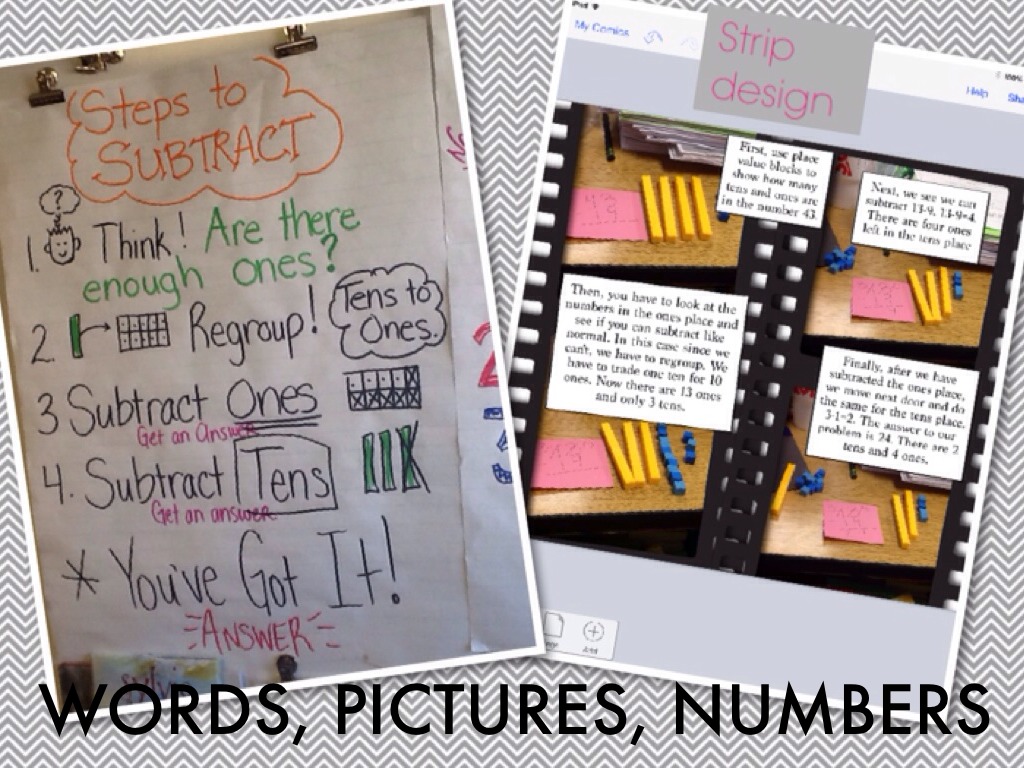 Steps to
SUBTRACT
?
1. Think! Are there
enough ones?
2. Regroup!
Tens to
Ones.
3 Subtract Ones
Get an Answer
4. Subtract Tens
Get an answer
* You've Got It!
ANSWER
iPad
My Comics
100%
Help
Strip
design
First, use place
value blocks to
show how many
tens and ones are
in the number 43.
Next, we see we can
subtract 13-9. 13-9=4.
There are four ones
left in the tens place
Then, you have to look at the
numbers in the ones place and
see if you can subtract like
normal. In this case since we
can't, we have to regroup. We
have to trade one ten for 10
ones. Now there are 13 ones
and only 3 tens.
Finally, after we have
subtracted the ones place,
we move next door and do
the same for the tens place.
3-1=2. The answer to our
problem is 24. There are 2
tens and 4 ones.
43
19
Add
WORDS, PICTURES, NUMBERS